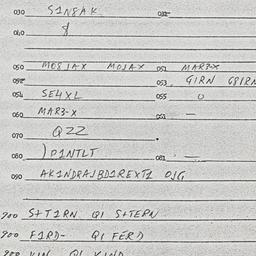 030 S1N8AK 032
040 8
050 MO8JAX MOJAX 051 MAR7-X
052 053 GIRN G8IRN
054 SE4XL 055 0
060 MAR3-X 061 —
070 QZZ
080 )P1NTLT 081 —
090 AK1NDRAJBD1REXT1 OJG
900 S+T1RN QI S+TERN
900 F1RD- QI FERD
900 KIN QI KIND